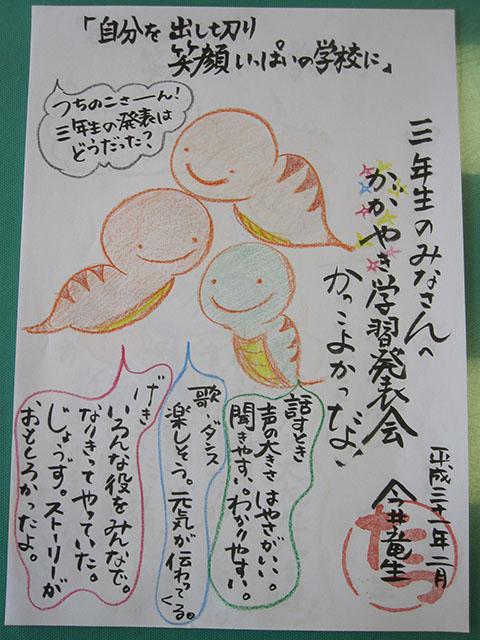 「自分を出し切り
笑顔いっぱいの学校に」
つちのこさーん！
三年生の発表は
どうだった？
三年生のみなさんへ
かがやき学習発表会
かっこよかったよ！
平成三十一年二月
今井竜生
たつ
話すとき
声の大きさ はやさがいい。
聞きやすい。わかりやすい。
歌・ダンス
楽しそう。元気が伝わってくる。
げき
いろんな役をみんなで。
なりきってやっていた。
じょうず。ストーリーが
おもしろかったよ。